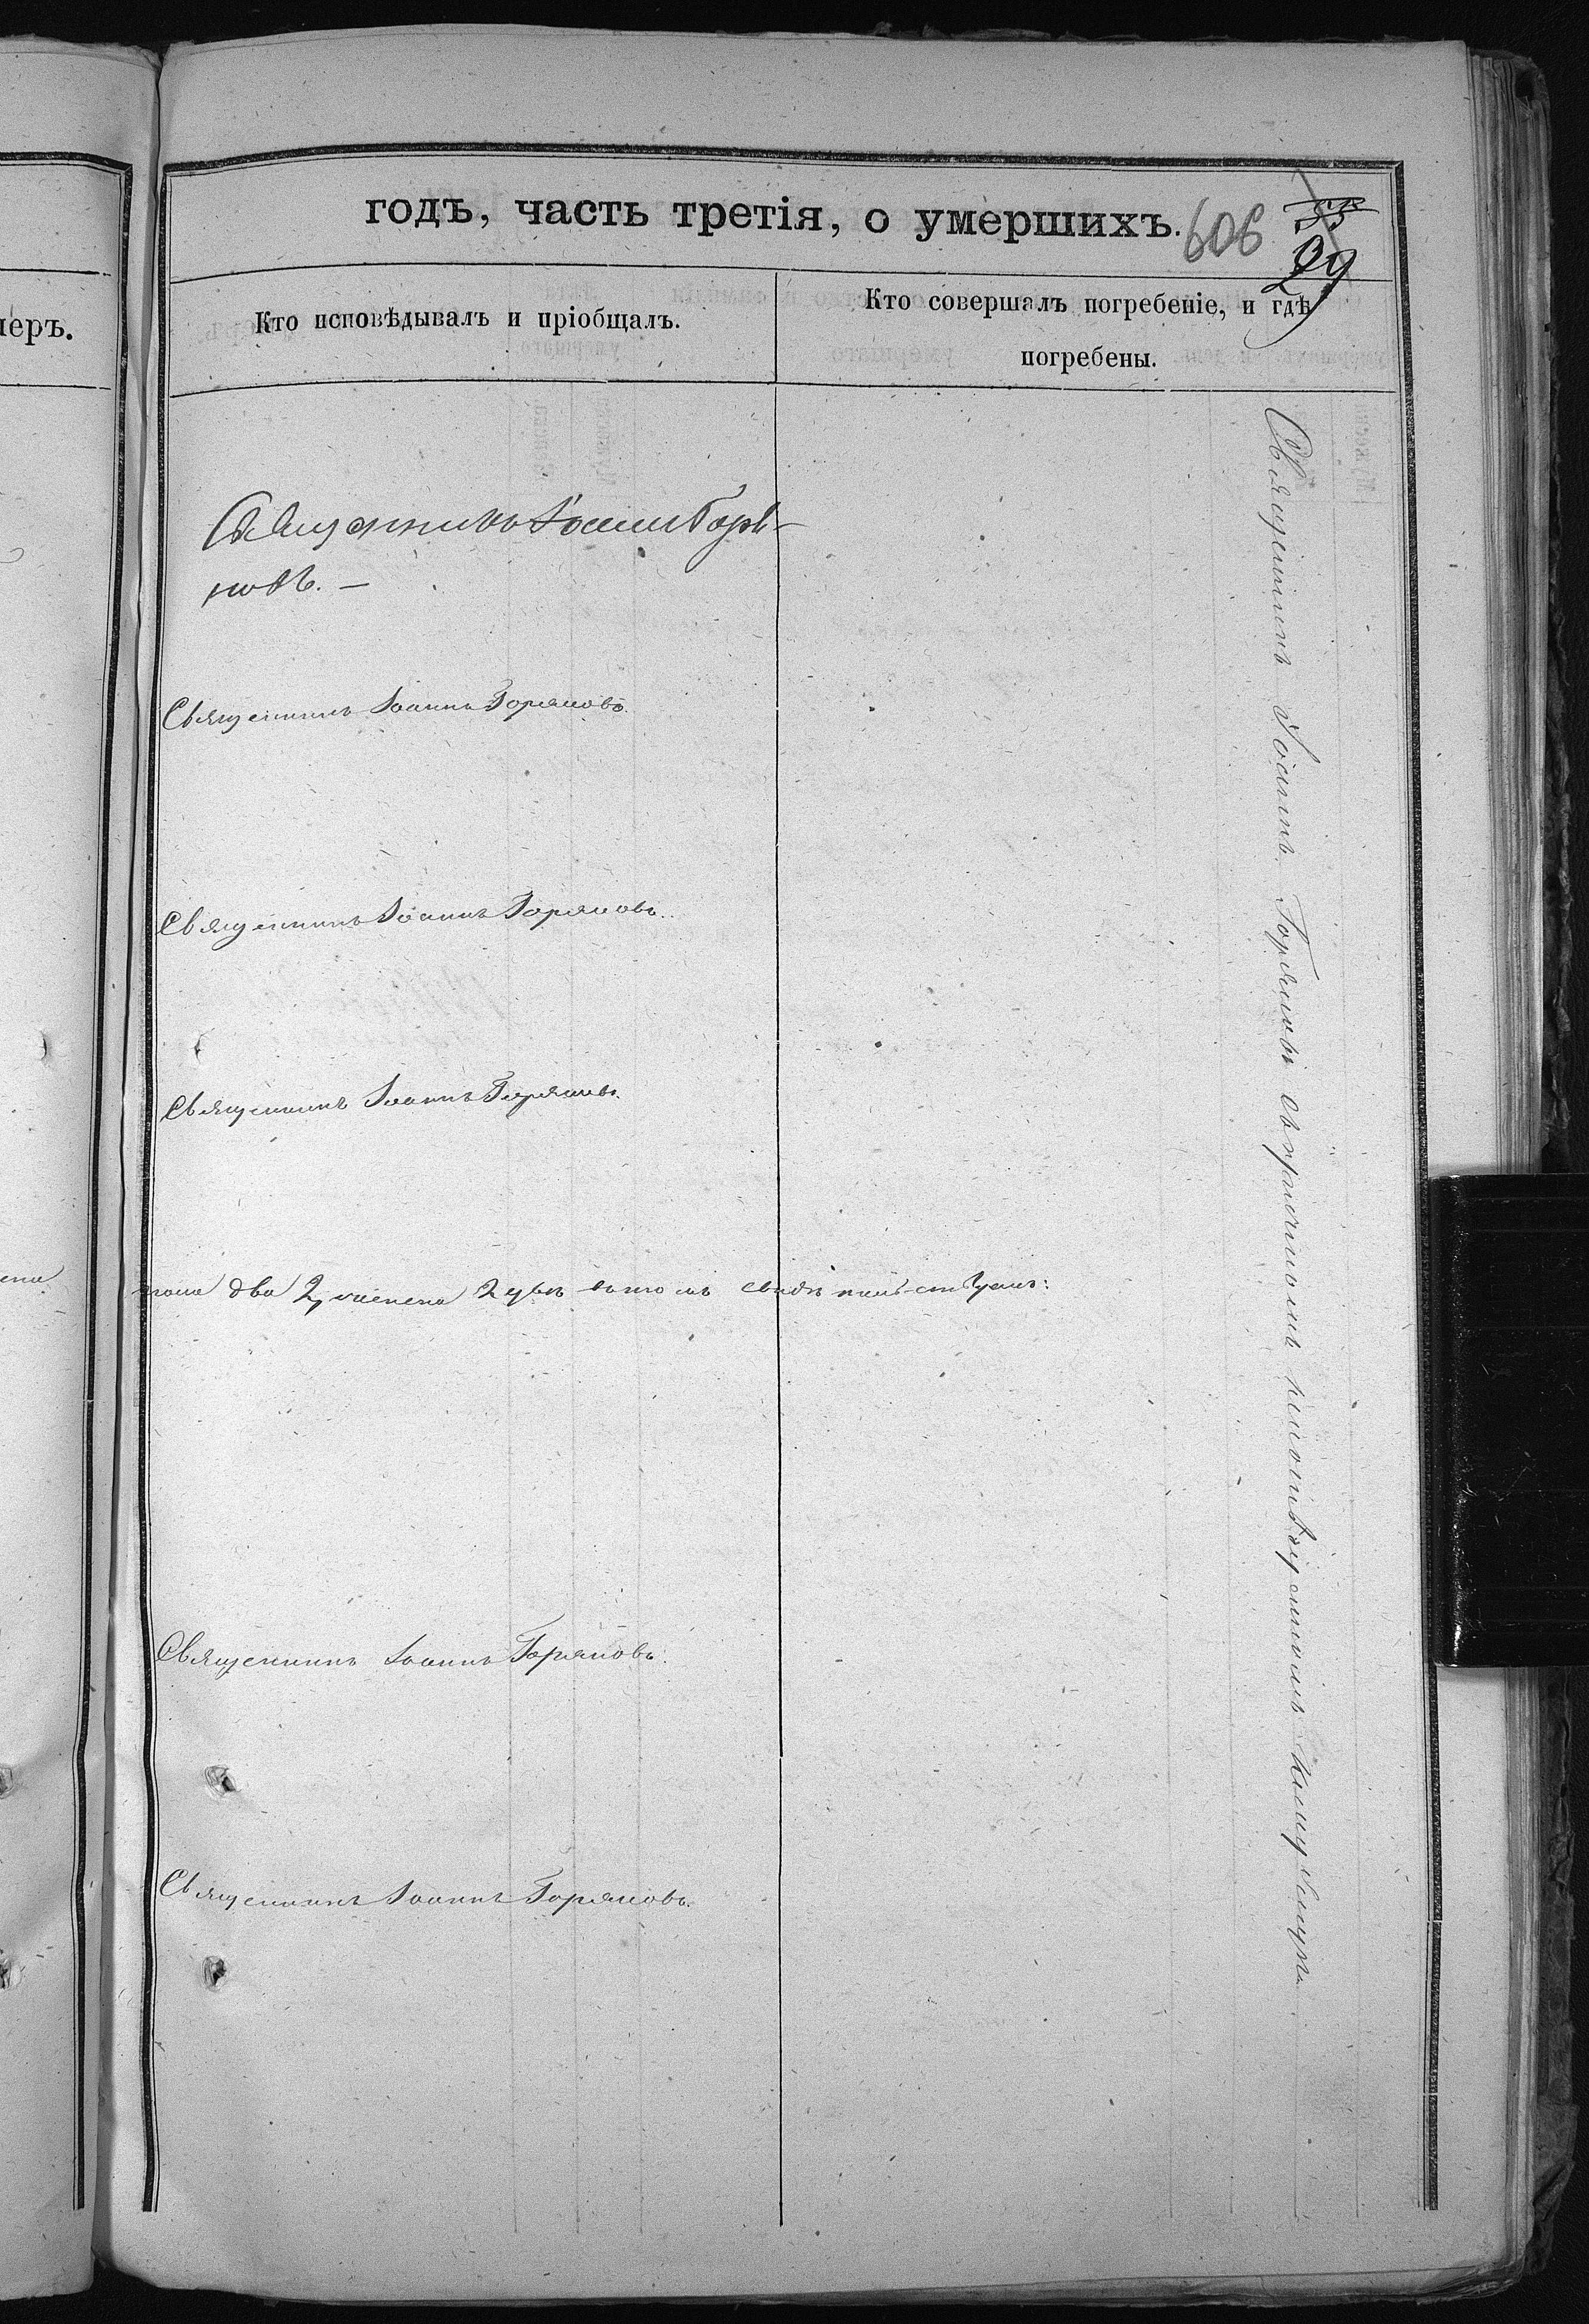 меръ.
годъ, часть третія, о умершихъ.
606
55
29
Кто исповѣдывалъ и пріобщалъ.
Кто совершалъ погребеніе, и гдѣ
погребены.
Священникъ Іоаннъ Горя-
новъ. —
Священникъ Іоаннъ Горяновъ.
Священникъ Іоаннъ Горяновъ.
Священникъ Іоаннъ Горяновъ.
два 2, 2
Священникъ Іоаннъ Горяновъ.
Священникъ Іоаннъ Горяновъ.
Священникъ Іоаннъ Горяновъ съ причтомъ